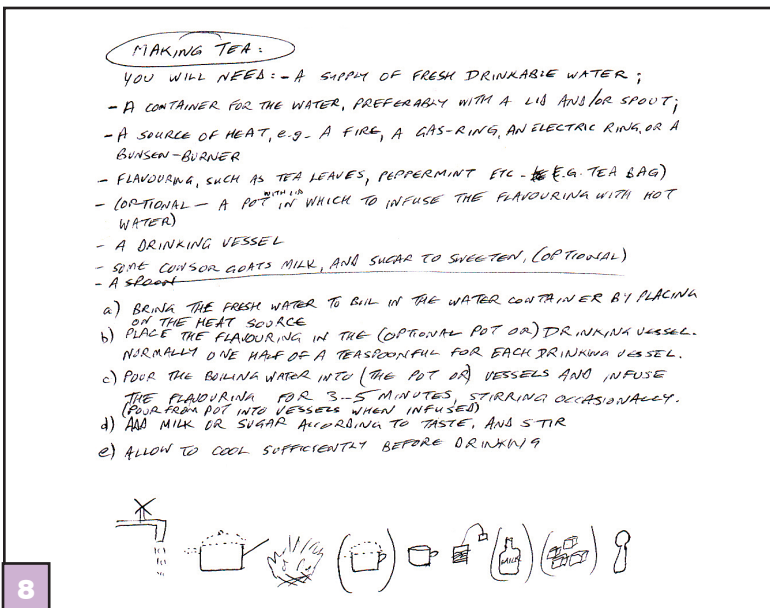 MAKING TEA:
YOU WILL NEED:- A SUPPLY OF FRESH DRINKABLE WATER;
- A CONTAINER FOR THE WATER, PREFERABLY WITH A LID AND/OR SPOUT;
- A SOURCE OF HEAT, e.g. A FIRE, A GAS-RING, AN ELECTRIC RING, OR A
BUNSEN-BURNER
- FLAVOURING, SUCH AS TEA LEAVES, PEPPERMINT ETC - (E.G. TEA BAG)
WITH LID
- (OPTIONAL - A POT IN WHICH TO INFUSE THE FLAVOURING WITH HOT
WATER)
- A DRINKING VESSEL
- SOME COWS OR GOATS MILK, AND SUGAR TO SWEETEN, (OPTIONAL)
- A SPOON
a) BRING THE FRESH WATER TO BOIL IN THE WATER CONTAINER BY PLACING
ON THE HEAT SOURCE
b) PLACE THE FLAVOURING IN THE (OPTIONAL POT OR) DRINKING VESSEL.
NORMALLY ONE HALF OF A TEASPOONFUL FOR EACH DRINKING VESSEL.
c) POUR THE BOILING WATER INTO (THE POT OR) VESSELS AND INFUSE
THE FLAVOURING FOR 3-5 MINUTES, STIRRING OCCASIONALLY.
(POUR FROM POT INTO VESSELS WHEN INFUSED)
d) ADD MILK OR SUGAR ACCORDING TO TASTE, AND STIR
e) ALLOW TO COOL SUFFICIENTLY BEFORE DRINKING
MILK
8